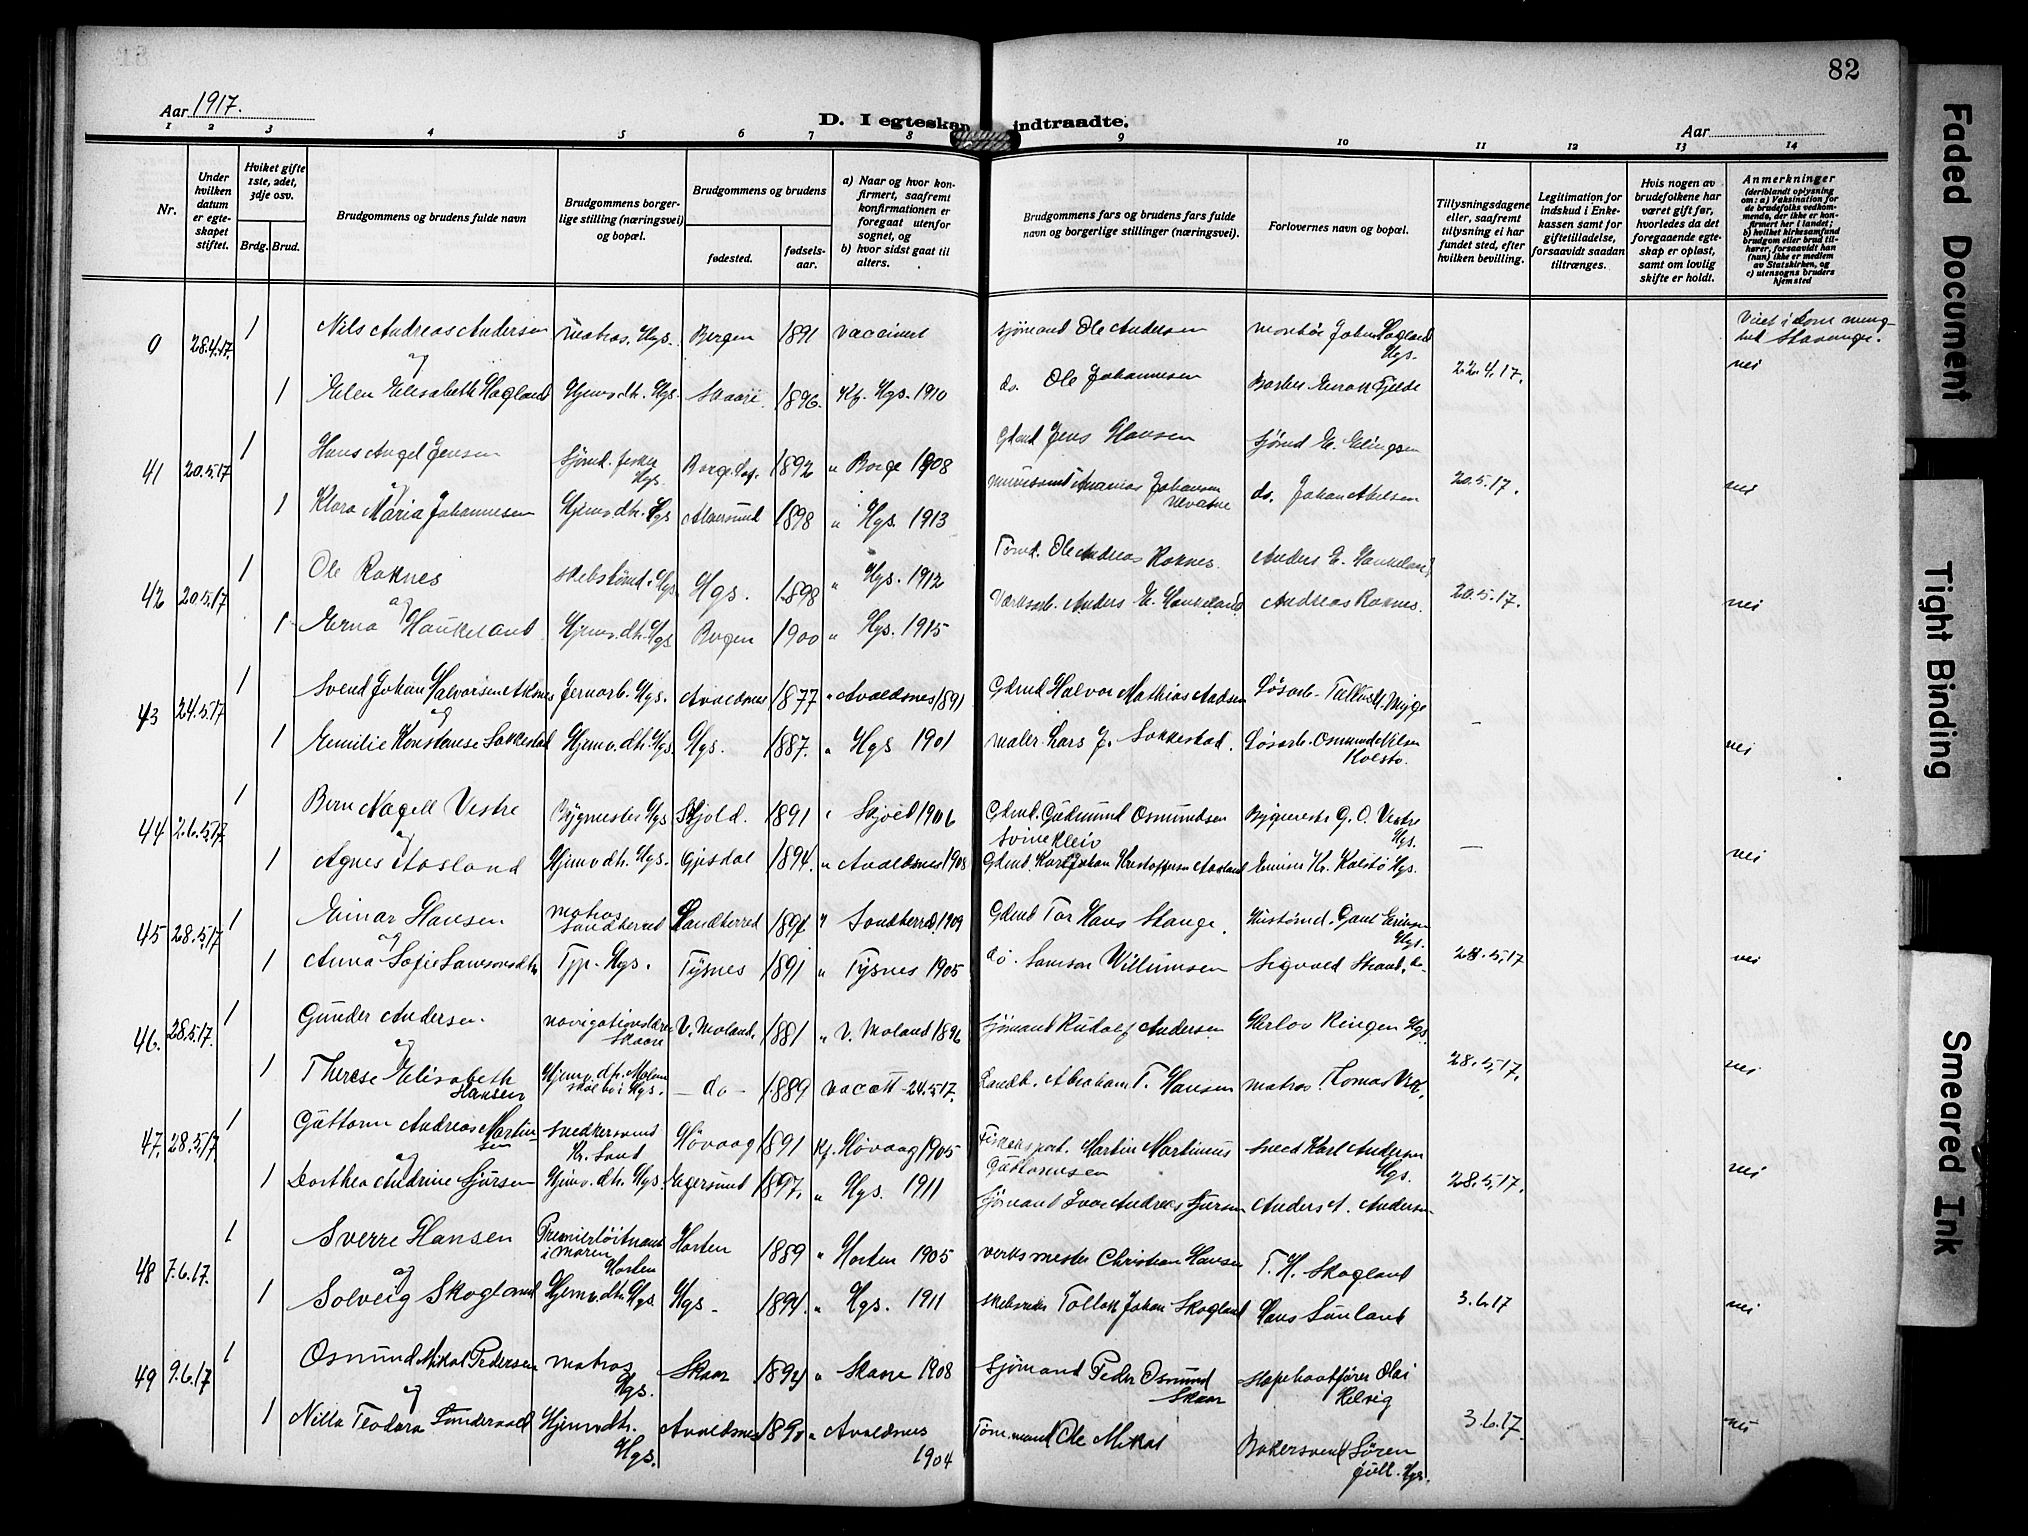 82
Aar 1917.
D. I egteskap indtraadte.
Aar
1 2 3 4 5 6 7 8 9 10 11 12 13 14
Nr.
Under hvilken datum er egteskapet stiftet.
Hviket gifte 1ste, 2det, 3dje osv.
Brdg. Brud.
Brudgommens og brudens fulde navn
Brudgommens borgerlige stilling (næringsvei) og bopæl.
Brudgommens og brudens
fødested.
fødselsaar.
a) Naar og hvor konfirmert, saafremt konfirmationen er foregaat utenfor sognet, og
b) hvor sidst gaat til alters.
Brudgommens fars og brudens fars fulde navn og borgerlige stillinger (næringsvei).
Forlovernes navn og bopæl.
Tillysningsdagene eller, saafremt tillysning ei har fundet sted, efter hvilken bevilling.
Legitimation for indskud i Enkekassen samt for giftetilladelse, forsaavidt saadan tiltrænges.
Hvis nogen av brudefolkene har været gift før, hvorledes da det foregaaende egteskap er opløst, samt om lovlig skifte er holdt.
Anmerkninger
(deriblandt oplysning om: a) Vaksination for de brudefolks vedkommende, der ikke er konfirmert her i landet; b) hvilket kirkesamfund brudgom eller brud tilhører, forsaavidt han (hun) ikke er medlem av Statskirken, og c) utensogns bruders hjemsted
0 28.4.17. 1 Nils Andreas Andersen matros. Hgs. Bergen 1891 vaccinert sjømand Ole Andersen montør Johan Hagland Hgs. 22.4.17.
og
1 Elen Elisabeth Hagland Hjemv. dh. Hgs. Skaare 1896. Kf. Hgs. 1910 do. Ole Johannesen nei
41 20.5.17 1 Hans Angel Jensen Sjømd. fisker Hgs. Borge Lof. 1892 " Borge 1908 Gdmd Jens Hansen Sjømd E. Elingsen 20.5.17.
og
1 Klara Maria Johannesen Hjemv. dh. Hgs Alversund 1898 " Hgs. 1913 do. Johan Abelsen nei
42 20.5.17 1 Ole Roknes Hgs. 1898 " Hgs. 1912 Tømd. Ole Andreas Roknes. Anders E. Haukeland 20.5.17.
og
1 Erna Haukeland Hjemv. dh. Hgs Bergen 1900 " Hgs. 1915 Værksarb. Anders E. Haukeland Andreas Roknes. nei
43 24.5.17 1 Svend Johan Halvorsen Aksnes Jernarb. Hgs. Avaldsnes 1877 " Avaldsnes 1891 Gdmd Halvor Mathias Aadsen Løsarb. -
og
1 Emilie Konstanse Sakkestad Hjemv. dh. Hgs Hgs. 1887. " Hgs 1901 maler Lars J. Sakkestad. Løsarb. Osmund Nilsen Kolstø. nei
44 26.5.17 1 Bern Nagell Vestre Bygmester Hgs Skjold. 1891 " Skjold 1906 Gdmd. Gudmund Osmundsen Svinekleiv Bygmester G. O. Vestre Hgs.
og
1 Agnes Aasland Hjemv. dh. Hgs. Gjesdal 1894. " Avaldsnes 1908 Gdmd. Karl Johan Kristoffersen Aasland Kr. Kolstø Hgs. — nei
45 28.5.17 1 Einar Hansen matros Sandherred Sandherred 1894 " Sandherred. 1909 Gdmd Tor Hans Stange. Erikson Hgs. 28.5.17
og
1 Anna Sofie Samsonsdtr Tjp. Hgs. Tysnes 1891 " Tysnes 1905 do. Samson Willumsen Sigvald Strand. do nei
46. 28.5.17. 1 Gunder Andersen navigationslærer Skaare V. Moland. 1881 " V. Moland 1896 Sjømand Rudolf Andersen Herlov Ringen Hgs. 28.5.17.
og
1 Therese Elisabeth Hansen Hjemv. dh. Hgs. - do - 1889 vacatt 24.5.17. Landh. Abraham T. Hansen matros Tomas Vik. nei
47. 28.5.17. 1 Guttorm Andreas Martinsen snedkersvend Kr. Sand Høvaag 1891 Kf. Høvaag 1905 Martin Martinius Guttormsen Sned Karl Andersen Hgs. 28.5.17.
og
1 Dorthea Andrine Sjursen Hjemv. dh. Hgs. Egersund 1897. " Hgs. 1911 Sjømand Ivar Andreas Sjursen Anders A. Andersen nei
48 7.6.17. 1 Sverre Hansen Premierløitnant i marinen Horten Horten 1889 " Horten 1905 verksmester Christian Hansen T. H. Skogland 3.6.17
og
1 Solveig Skogland Hjemv. dh. Hgs. Hgs. 1894. " Hgs. 1911 skibsreder Tollak Johan Skogland Hans Sunland nei
49 9.6.17 1 Osmund Mikal Pedersen matros Hgs. Skaar 1894 " Skaare 1908 Sjømand Peder Osmund Skaar slæpebaatfører Olai Helvig 3.6.17.
og
1 Nilla Teodora Sunderaad Hjemv. dh. Hgs. Avaldsnes 1890 " Avaldsnes 1904 Tømmand Ole Mikal Bakersvend Søren Juell. Hgs. nei
Faded Document
Tight Binding
Smeared Ink